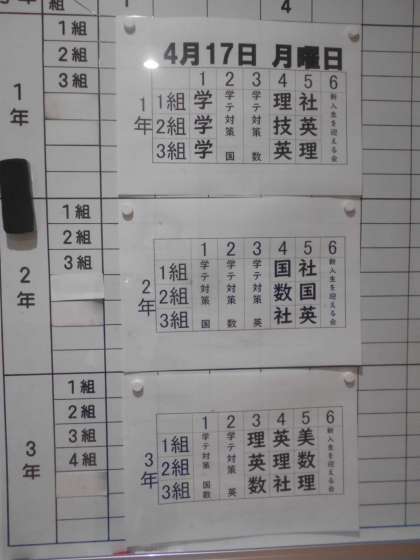 組 1 4
4月17日 月曜日
1 2 3 4 5 6
1年
1組 学 学テ対策 国 学テ対策 数 理 社 新入生を迎える会
2組 学 技 英
3組 学 英 理
1 2 3 4 5 6
2年
1組 学テ対策 国 学テ対策 数 学テ対策 英 国 社 新入生を迎える会
2組 数 国
3組 社 英
1 2 3 4 5 6
3年
1組 学テ対策 国数 学テ対策 英 理 英 美 新入生を迎える会
2組 英 理 数
3組 数 社 理
1年
1組
2組
3組
2年
1組
2組
3組
3年
1組
2組
3組
4組